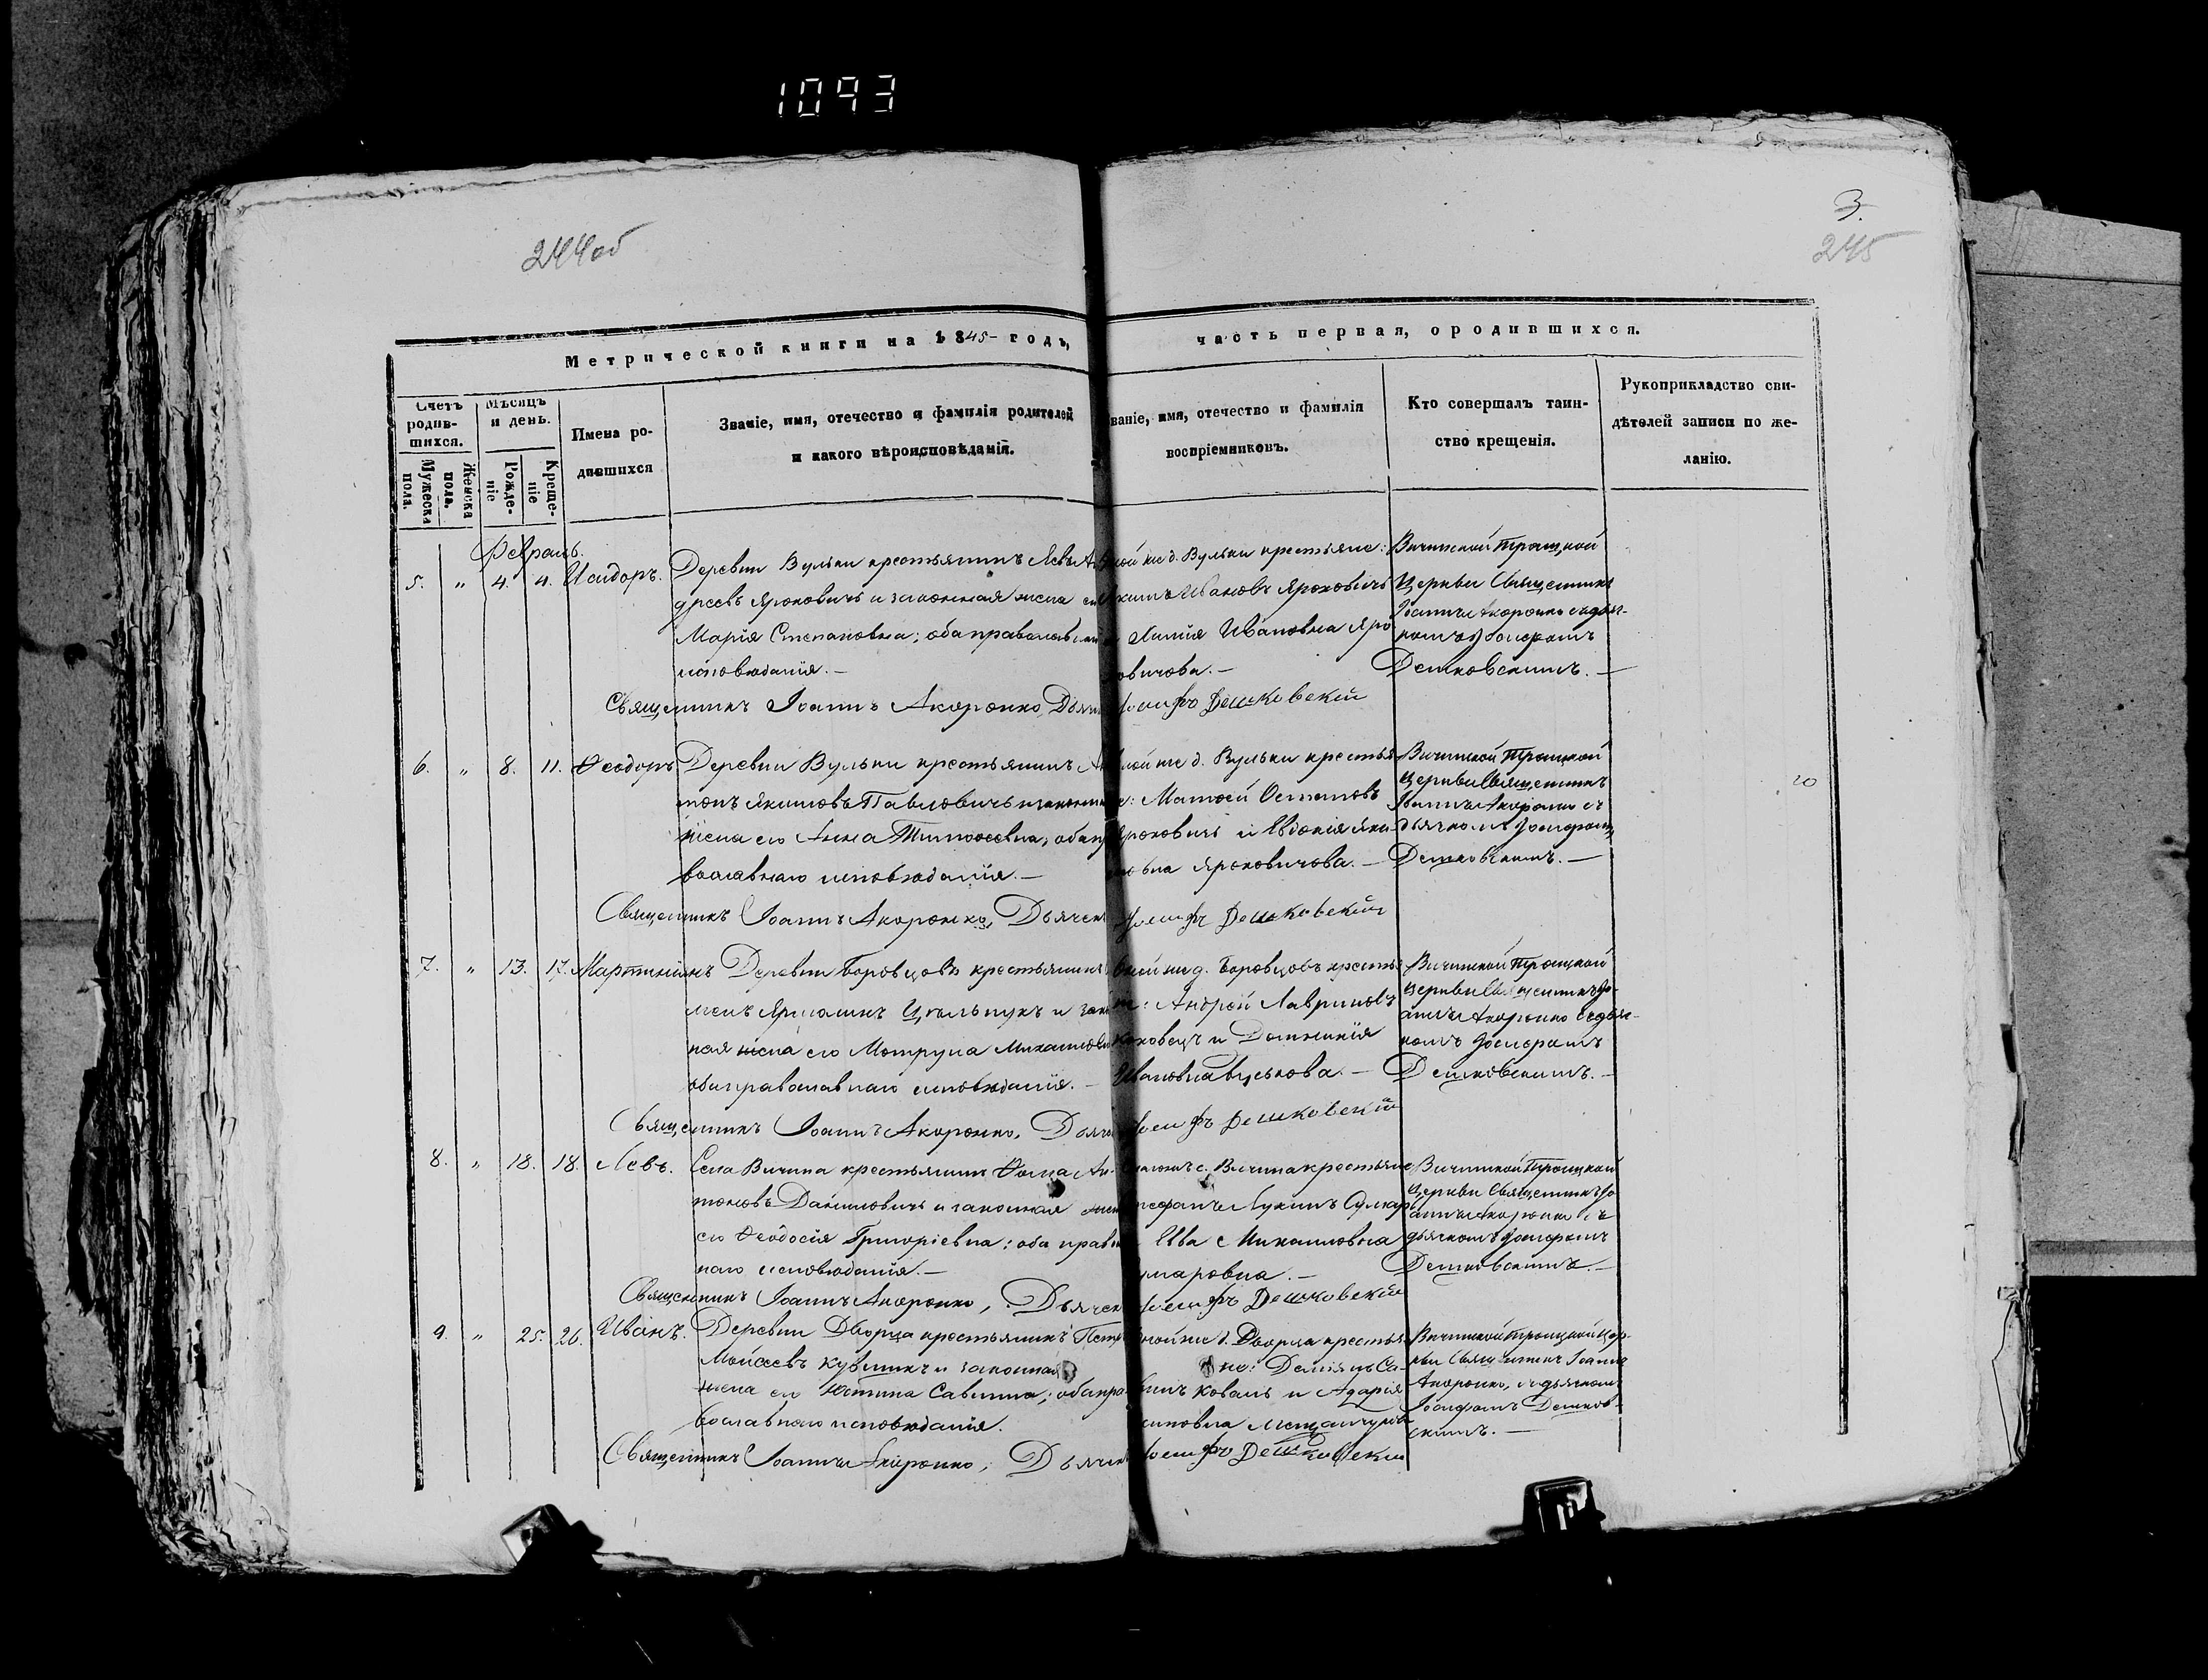 1093
244об
3.
245
Метрической книги на 1845 годъ, часть первая, ородившихся.
Счетъ родив-шихся.
Мужеска пола.
Женска пола.
Мѣсяцъ и день.
Рожде-ніе
Креще-ніе
Имена ро-
дившихся
Званіе, имя, отечество и фамилія родителей
и какого вѣроисповѣданія.
ваніе, имя, отечество и фамилія
воспріемниковъ.
Кто совершалъ таин-
ство крещенія.
Рукоприкладство сви-
дѣтелей записи по же-
ланію.
Февраль.
5. " 4. 4. Исидоръ.
Деревни Вульки крестьянинъ Левъ
дреевъ Яроковичъ и законная жена
Марія Степановна; оба православ
исповѣданія. —
д. Вульки крестьяне:
Ивановъ Ярохович
Ивановна Яро
овичова. —
Вичинской Троицкой
Церкви Священникъ
Іоаннъ Акоронко съ дьяч-
комъ Іосифомъ
Дешковскимъ. —
Священникъ Іоаннъ Акоронко, Дьяч Іосифъ Дешковскій
6. " 8. 11. Ѳеодоръ
Деревни Вульки крестьянинъ
тонъ Якимовъ Павловичъ и законн
жена его Анна Тимоѳеевна; оба пр
вославнаго исповѣданія. —
ой же д. Вульки крестья
е: Матѳей Остаповъ
Ярокович и Евдокія Яки-
мовна Яроковичова. —
Вичинской Троицкой
Церкви Священникъ
Іоаннъ Акоронко съ
дьячкомъ Іосифомъ
Дешковскимъ. —
20
Священникъ Іоаннъ Акоронко, Дьячек Іосифъ Дешковскій
7. " 13. 17. Мартиніянъ
Деревни Боровцовъ крестьянинъ
менъ Ярмолинъ Цѣльпукъ и зако
ная жена его Мотруна Михаилов
оба православнаго исповѣданія. —
ой же д. Боровцовъ кресть
не: Андрей Лавриновъ
Коховецъ и Домникія
Ивановна
Вичинской Троицкой
Церкви Священникъ Іо-
аннъ Акоронко съ дьяч-
комъ Іосифомъ
Дешковскимъ. —
Священникъ Іоаннъ Акоронко, Дьячек Іосифъ Дешковскій
8. " 18. 18. Левъ.
Села Вичина крестьянинъ Ѳома Ан-
тоновъ Даниловичъ и законная жен
его Ѳеодосія Григоріевна; оба прав
наго исповѣданія. —
с. Вичина крестьяне
тефанъ Лукинъ
Ева Михаиловна
маровна. —
Вичинской Троицкой
Церкви Священникъ Іо
аннъ Акоронко съ
дьячкомъ Іосифомъ
Дешковскимъ. —
Священникъ Іоаннъ Акоронко, Дьячек Іосифъ Дешковскій
9. " 25. 26. Иванъ.
Деревни Дворца крестьянинъ Петр
Мойсеевъ и законная
жена его Юстина Савишна; оба пра
вославнаго исповѣданія.
ой же д. Дворца крестья
не: Деміянъ Са-
винъ Коваль и Агарія
иповна
Вичинской Троицкой Цер-
кви Священникъ Іоаннъ
Акоронко, съ дьячкомъ
Іосифомъ Дешков-
скимъ. —
Священникъ Іоаннъ Акоронко, Дьячек Іосифъ Дешковскій